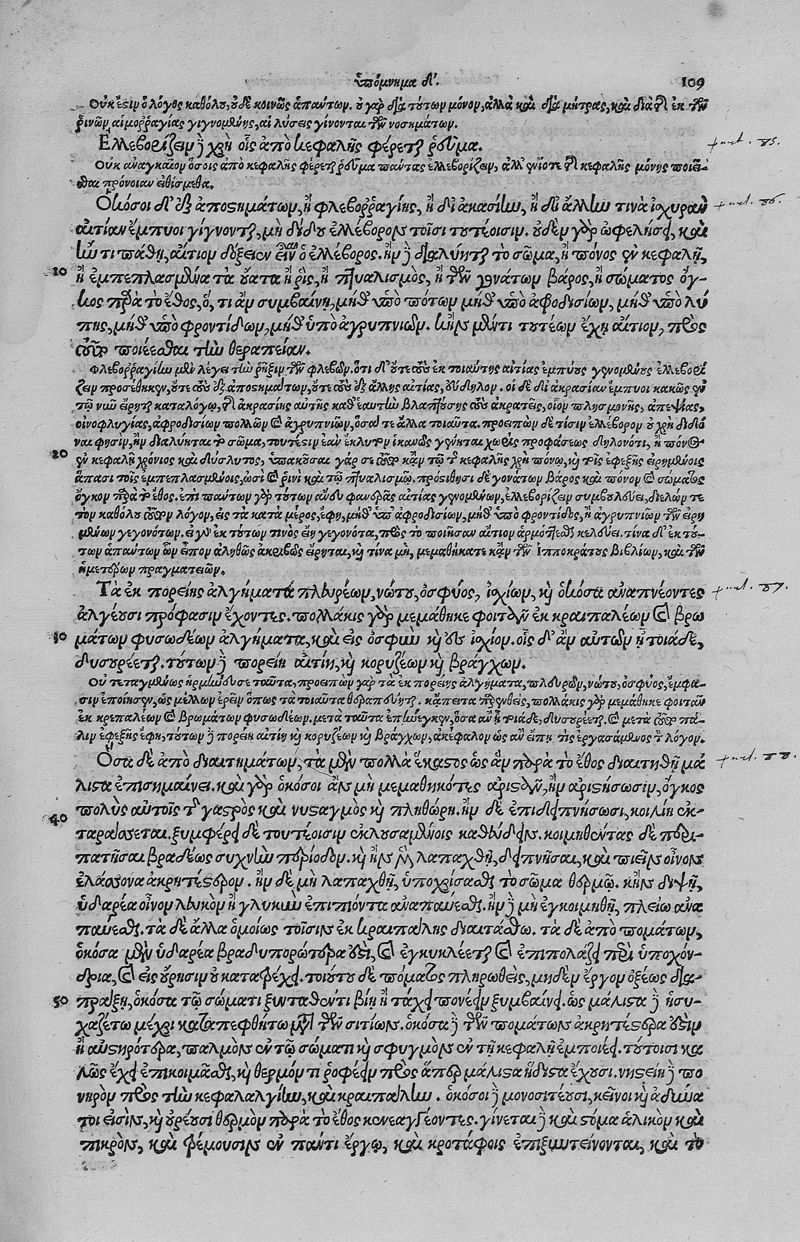 ὑπόμνημα δ'. 109
Οὐκ ἔστιν ὁ λόγος καθόλου, οὐδὲ κοινῶς ἁπάντων. οὐ γὰρ διὰ τούτων μόνον, ἀλλὰ καὶ διὰ μήτρας, καὶ διὰ τ ἐκ τῶν
ῥινῶν αἱμορραγίας γιγνομένης, αἱ λύσεις γίνονται τῶν νοσημάτων.
Ἐλλεβορίζειν ἢ χρὴ οἷς ἀπὸ κεφαλῆς φέρεται ῥεῦμα.
Οὐκ ἀναγκαῖον ὅσοις ἀπὸ κεφαλῆς φέρεται ῥεῦμα πάντας ἐλλεβορίζειν, ἀλλ' ἐνίοτε τ κεφαλῆς μόνης ποιεῖ-
σθαι πρόνοιαν εἰθίσμεθα.
Ὁκόσοι δ' ἐξ ἀποστημάτων, ἢ φλεβορραγίης, ἢ δι' ἀκρασίην, ἢ δι' ἄλλην τινὰ ἰσχυρὰν
αἰτίαν ἔμπυοι γίγνονται, μὴ δίδου ἐλλέβορον τοῖσι τουτέοισιν. οὐδὲν γὰρ ὠφελήσει, καὶ
ἤν τι πάθη, αἴτιον δόξειεν εἶναι ὁ ἐλλέβορος. ἢν δὲ διαλύηται τὸ σῶμα, ἢ πόνος ἐν κεφαλῇ,
10 ἢ ἐμπεπλασμένα τὰ οὔατα ἢ ῥὶς, ἢ πτυαλισμὸς, ἢ τῶν γονάτων βάρος, ἢ σώματος ὄγ-
κος παρὰ τὸ ἔθος, ὅ, τι ἂν συμβαίνῃ, μήθ' ὑπὸ πότων μήθ' ὑπὸ ἀφροδισίων, μήθ' ὑπὸ λύ
πης, μήθ' ὑπὸ φροντίδων, μήθ' ὑπὸ ἀγρυπνιῶν. κἢν μέν τι τουτέων ἔχῃ αἴτιον, πρὸς
τοῦτο ποιέεσθαι τὴν θεραπείαν.
Φλεβορραγίαν μὲν λέγει τὴν ῥῆξιν τῶν φλεβῶν. ὅτι δ' οὔτε τοὺς ἐκ τοιαύτης αἰτίας ἐμπύους γενομένους ἐλλεβορί
ζειν προσέθηκεν, οὔτε τοὺς ἐξ ἀποστημάτων, οὔτε τοὺς ἐξ ἄλλης αἰτίας, οὐ δῆλον. οἱ δὲ δι' ἀκρασίαν ἔμπυοι κακῶς ἐν
τῷ νῦν εἴρηται καταλόγῳ, τ ἀκρασίης αὐτῆς καθ' ἑαυτὴν βλαπτούσης τοὺς ἀκρατεῖς, οἷον πλησμονῆς, ἀπεψίας,
οἰνοφλυγίας, ἀφροδισίων πολλῶν καὶ ἀγρυπνιῶν, ὅσα τε ἄλλα τοιαῦτα. προειπὼν δέ τισιν ἐλλέβορον οὐ χρὴ διδό
ναι φησὶν, ἢν διαλύηται τὸ σῶμα, τουτέστιν ἐὰν ἔκλυτον ἱκανῶς γένηται χωρὶς προφάσεως δηλονότι, ἢ πόνος
20 ἐν κεφαλῇ χρόνιος καὶ δύσλυτος, ὑπακοῦσαι γάρ σε τοῦτο κἂν τῷ τ κεφαλῆς χρὴ πόνῳ, καὶ τοῖς ἐφεξῆς εἰρημένοις
ἅπασι τοῖς ἐμπεπλασμένοις, ὠσὶ καὶ ῥινὶ καὶ τῷ πτυαλισμῷ. προστίθησι δὲ γονάτων βάρος καὶ πόνον καὶ σώματος
ὄγκον παρὰ τὸ ἔθος. ἐπὶ πάντων γὰρ τούτων ἄνευ φανερᾶς αἰτίας γενομένων, ἐλλεβορίζειν συμβουλεύει, δηλῶν τε
τὸν καθόλου τοῦτον λόγον, εἰς τὰ κατὰ μέρος, ἔφη, μήθ' ὑπ' ἀφροδισίων, μήθ' ὑπὸ φροντίδος, ἢ ἀγρυπνιῶν τῶν εἰρη
μένων γεγονότων. εἰ γὰρ ἐκ τούτων τινὸς εἴη γεγονότα, πρὸς τὸ ποιῆσαν αἴτιον ἁρμόττεσθαι κελεύει. τίνα δ' ἐκ τού-
των ἁπάντων ὧν εἶπον ἀληθῶς ἀκριβῶς εἴρηται, καὶ τίνα μὴ, μεμαθήκατε κἂν τῶν Ἱπποκράτους βιβλίων, καὶ τῶν
ἡμετέρων πραγματειῶν.
Τὰ ἐκ πορείης ἀλγήματα πλευρέων, νώτου, ὀσφύος, ἰσχίων, καὶ ὁκόσα ἀναπνέοντες
ἀλγέουσι πρόφασιν ἔχοντες. πολλάκις γὰρ μεμάθηκε φοιτᾶν ἐκ κραιπαλέων καὶ βρω
30 μάτων φυσωδέων ἀλγήματα, καὶ εἰς ὀσφὺν καὶ ἐς ἰσχίον. οἷς δ' ἂν αὐτῶν ᾖ τοιάδε,
δυσουρέεται. τούτων δὲ πορείη αἰτίη, καὶ κορυζέων καὶ βράγχων.
Οὐ τεταγμένως ἡρμήνευσε ταῦτα, προειπὼν γὰρ τὰ ἐκ πορείης ἀλγήματα, πλευρῶν, νώτου, ὀσφύος, ἔμφα-
σιν ἐποίησεν, ὡς μέλλων ἐρεῖν ὅπως τὰ τοιαῦτα θεραπεύηται. κἄπειτα προσθεὶς, πολλάκις γὰρ μεμάθηκε φοιτᾶν
ἐκ κρεπαλέων καὶ βρωμάτων φυσωδέων. μετὰ ταῦτα ἐπήνεγκεν, ὅσα ἂν ᾖ τοιάδε, δυσουρέεται. καὶ μετὰ τοῦτο πά-
λιν ἐφεξῆς ἔφη, τούτων δὲ πορείη αἰτίη καὶ κορυζέων καὶ βράγχων, ἀκέφαλον ὡς ἂν εἴπῃ τις ἐργασάμενος τ λόγον.
Ὅσα δὲ ἀπὸ διαιτημάτων, τὰ μὲν πολλὰ ἕκαστος ὡς ἂν παρὰ τὸ ἔθος διαιτηθῇ μά
λιστα ἐπισημαίνει. καὶ γὰρ ὁκόσοι ἂν μὴ μεμαθηκότες ἀριστᾶν, ἢν ἀριστήσωσιν, ὄγκος
40 πολὺς αὐτοῖς τ γαστρὸς καὶ νυσταγμὸς καὶ πληθώρη. ἢν δὲ ἐπιδειπνήσωσι, κοιλίη ἐκ-
ταράσσεται. ξυμφέρει δὲ τουτέοισιν ἐκλουσαμένοις καθεύδειν. κοιμηθέντας δὲ περι-
πατῆσαι βραδέως συχνὴν περίοδον. καὶ ἢν μὲν λαπαχθῇ, δειπνῆσαι, καὶ πιεῖν οἶνον
ἐλάσσονα ἀκρητέστερον. ἢν δὲ μὴ λαπαχθῇ, ὑποχρίσασθαι τὸ σῶμα θερμῷ. κἢν διψῇ,
ὑδαρέα οἶνον λευκὸν ἢ γλυκὺν ἐπιπιόντα ἀναπαύεσθαι. ἢν δὲ μὴ ἐγκοιμηθῇ, πλείω ἀνα
παύεσθαι. τὰ δὲ ἄλλα ὁμοίως τοῖσιν ἐκ κραιπάλης διαιτάσθω. τὰ δὲ ἀπὸ πομάτων,
ὁκόσα μὲν ὑδαρέα βραδυπορώτερά ἐστι, καὶ ἐγκυκλέεται καὶ ἐπιπολάζει περὶ ὑποχόν-
δρια, καὶ εἰς οὔρησιν οὐ κατατρέχει. τούτου δὲ πόματος πληρωθεὶς, μηδὲν ἔργον ὀξέως δια-
50 πράξῃ, ὁκόσα τῷ σώματι ξυνταθέντι βίῃ ἢ τάχει πονέειν ξυμβαίνει. ὡς μάλιστα δὲ ἡσυ-
χαζέτω μέχρι καταπεφθῇ τῶν σιτίων. ὁκόσα δὲ τῶν πομάτων ἀκρητέστερά ἐστιν
ἢ αὐστηρότερα, παλμὸν ἐν τῷ σώματι καὶ σφυγμὸν ἐν τῇ κεφαλῇ ἐμποιέει. τούτοισι κα
λῶς ἔχει ἐπικοιμᾶσθαι, καὶ θερμόν τι ῥοφέειν πρὸς ἅπερ μάλιστα ἥδιστα ἔχουσι. νηστείη δὲ πο
νηρὸν πρὸς τὴν κεφαλαλγίην, καὶ κραιπάλην. ὁκόσοι δὲ μονοσιτέουσι, κεῖνοι καὶ ἀδύνα
τοί εἰσιν, καὶ οὐρέουσι θερμὸν παρὰ τὸ ἔθος κενεαγγέοντες. γίνεται δὲ καὶ στόμα ἁλικὸν καὶ
πικρὸν, καὶ τρέμουσιν ἐν παντὶ ἔργῳ, καὶ κροτάφοις ἐπιξυντείνονται, καὶ τὸ